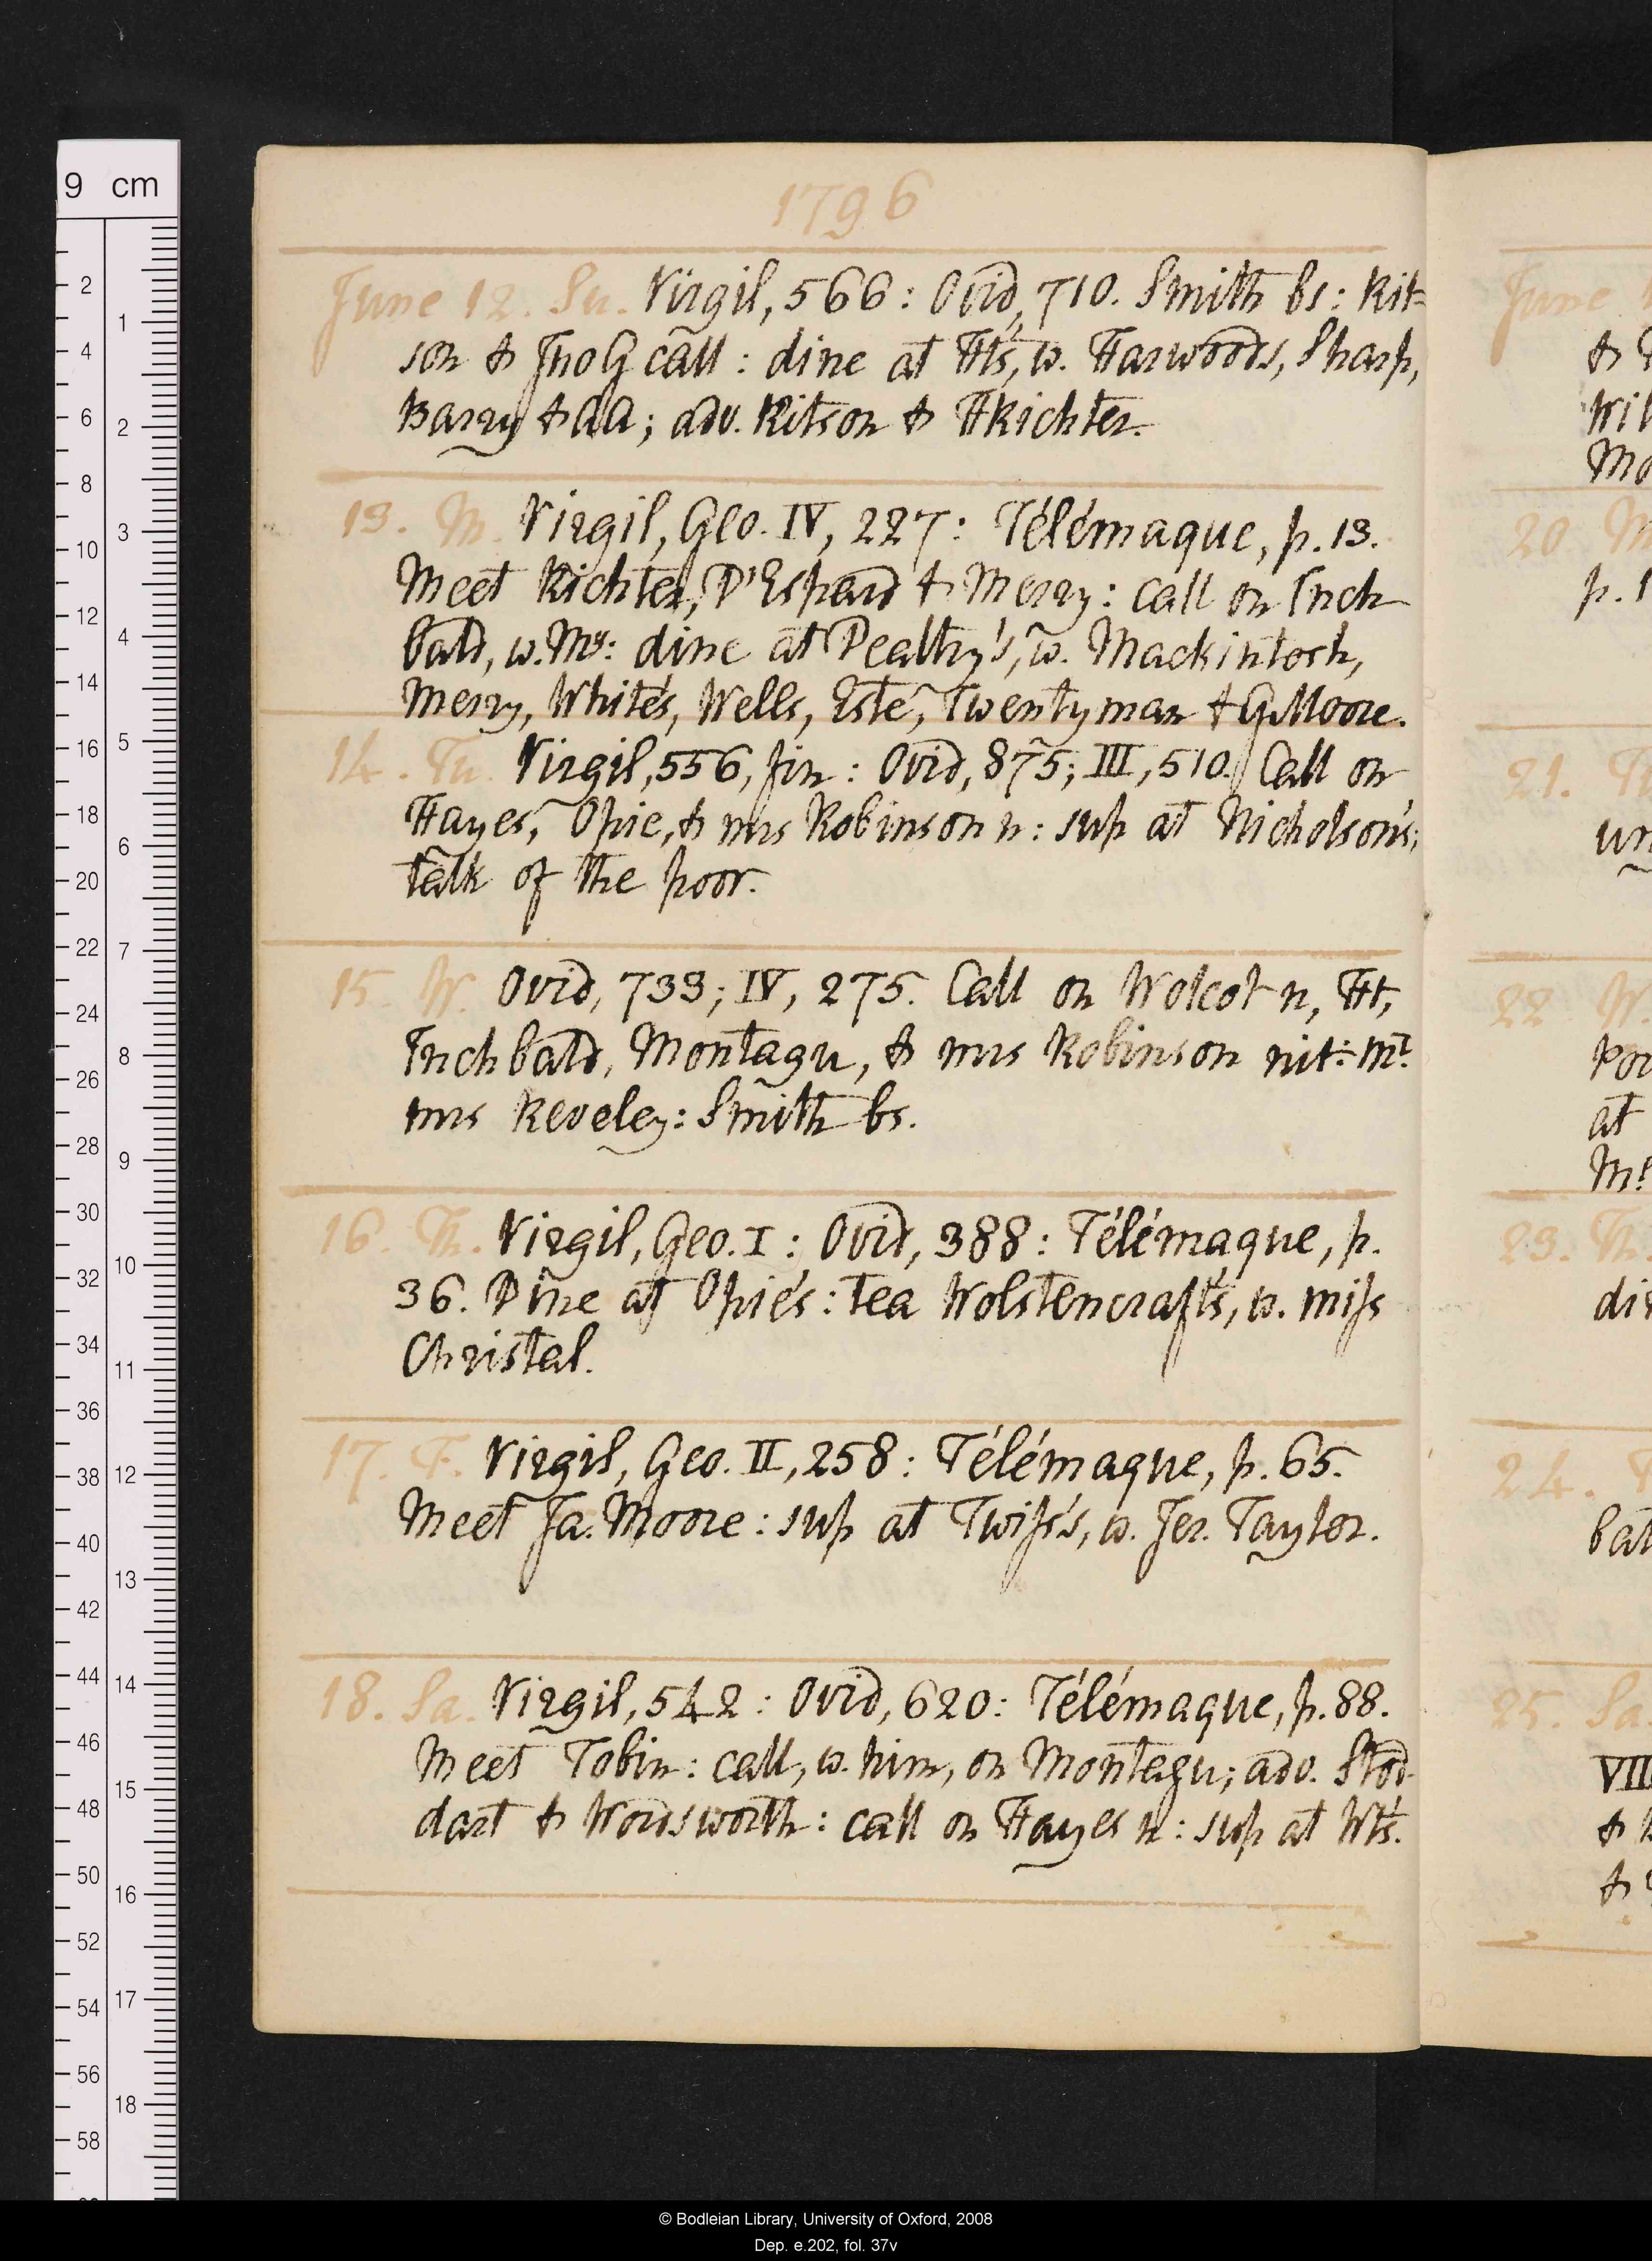 1796
June 12. Su. Virgil, 566: Ovid, 710. Smith bs: Rit-
son & JnoG call: dine at Hts, w. Harwoods, Sharp,
Barry & AA; adv. Ritson & HRichter.
13. M. Virgil, Geo. IV, 227: Télémaque, p. 13.
Meet Richter, D'Espard & Merry: call on Inch
bald, w. My: dine at Dealtry's, w. Mackintosh,
Merry, White's, Wells, Este, Twentyman & GMoore.
14. Tu. Virgil, 556, fin: Ovid, 875; III, 510. Call on
Hayes, Opie, & mrs Robinson n: sup at Nicholson's;
talk of the poor.
15. W. Ovid, 733; IV, 275. Call on Wolcot n, Ht,
Inchbald, Montagu, & mrs Robinson nit: mt
mrs Reveley: Smith bs.
16. Th. Virgil, Geo. I: Ovid, 388: Télémaque, p.
36. Dine at Opie's: tea Wolstencraft's, w. miss
Christal.
17. F. Virgil, Geo. II, 258: Télémaque, p. 65.
Meet Ja. Moore: sup at Twiss's, w. Jer. Taylor.
18. Sa. Virgil, 542: Ovid, 620: Télémaque, p. 88.
Meet Tobin: call, w. him, on Montagu; adv. Stod-
dart & Wordsworth: call on Hayes n: sup at Wt's.
June
20 M
p. 1
21. Tu
22 W.
at
23. Th.
24.
25. Sa
VII
9 cm
2
4
6
8
10
12
14
16
18
20
22
24
26
28
30
32
34
36
38
40
42
44
46
48
50
52
54
56
58
1
2
3
4
5
6
7
8
9
10
11
12
13
14
15
16
17
18
© Bodleian Library, University of Oxford, 2008
Dep. e.202, fol. 37v